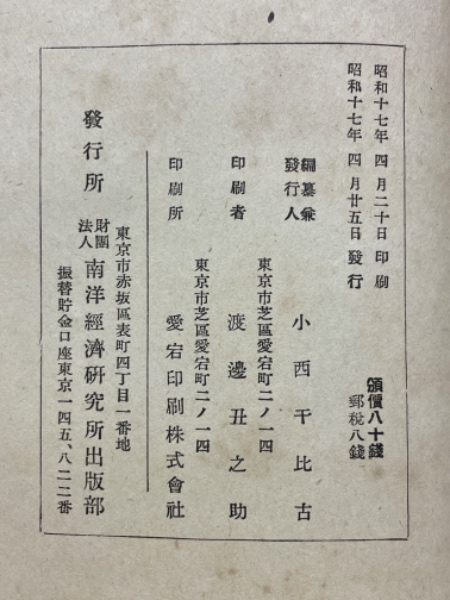 昭和十七年 四月二十日 印刷
昭和十七年 四月廿五日 發行
頒價八十錢
郵稅八錢
編纂兼
發行人
小西干比古
東京市芝區愛宕町二ノ一四
印刷者
渡邊丑之助
東京市芝區愛宕町二ノ一四
印刷所
愛宕印刷株式會社
東京市赤坂區表町四丁目一番地
發行所
財團
法人
南洋經濟硏究所出版部
振替貯金口座東京一四五、八二二番